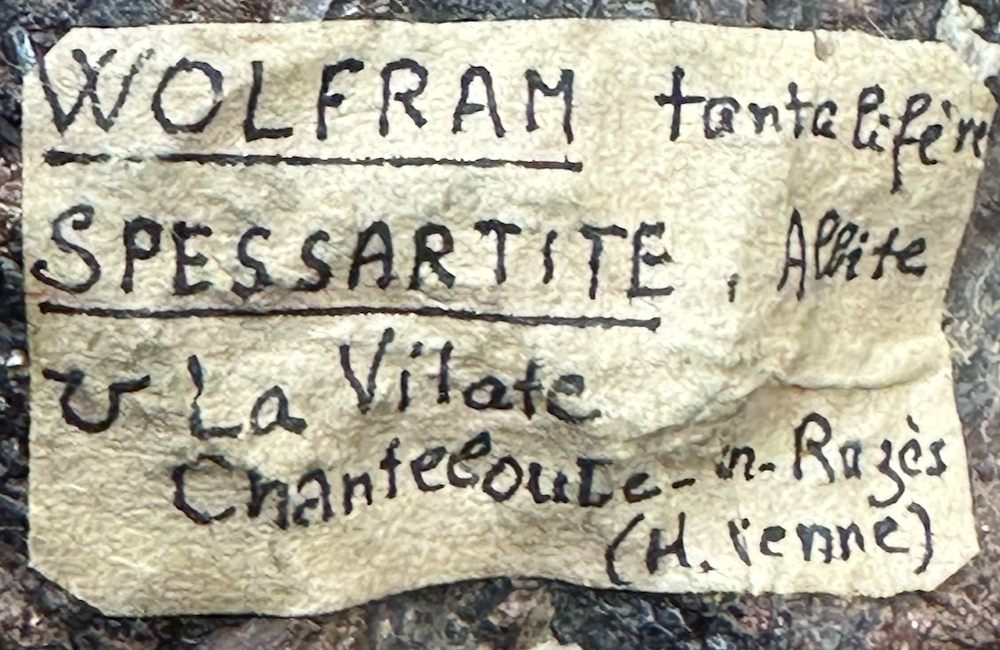 WOLFRAM tantalifère
SPESSARTITE, Albite
La Vilate
Chanteloube-en-Razès
(H. Vienne)